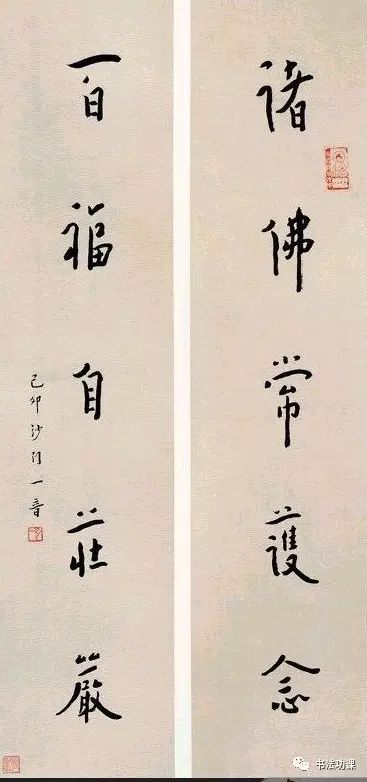 諸佛常護念
百福自莊嚴
己卯沙門一音
书法功课